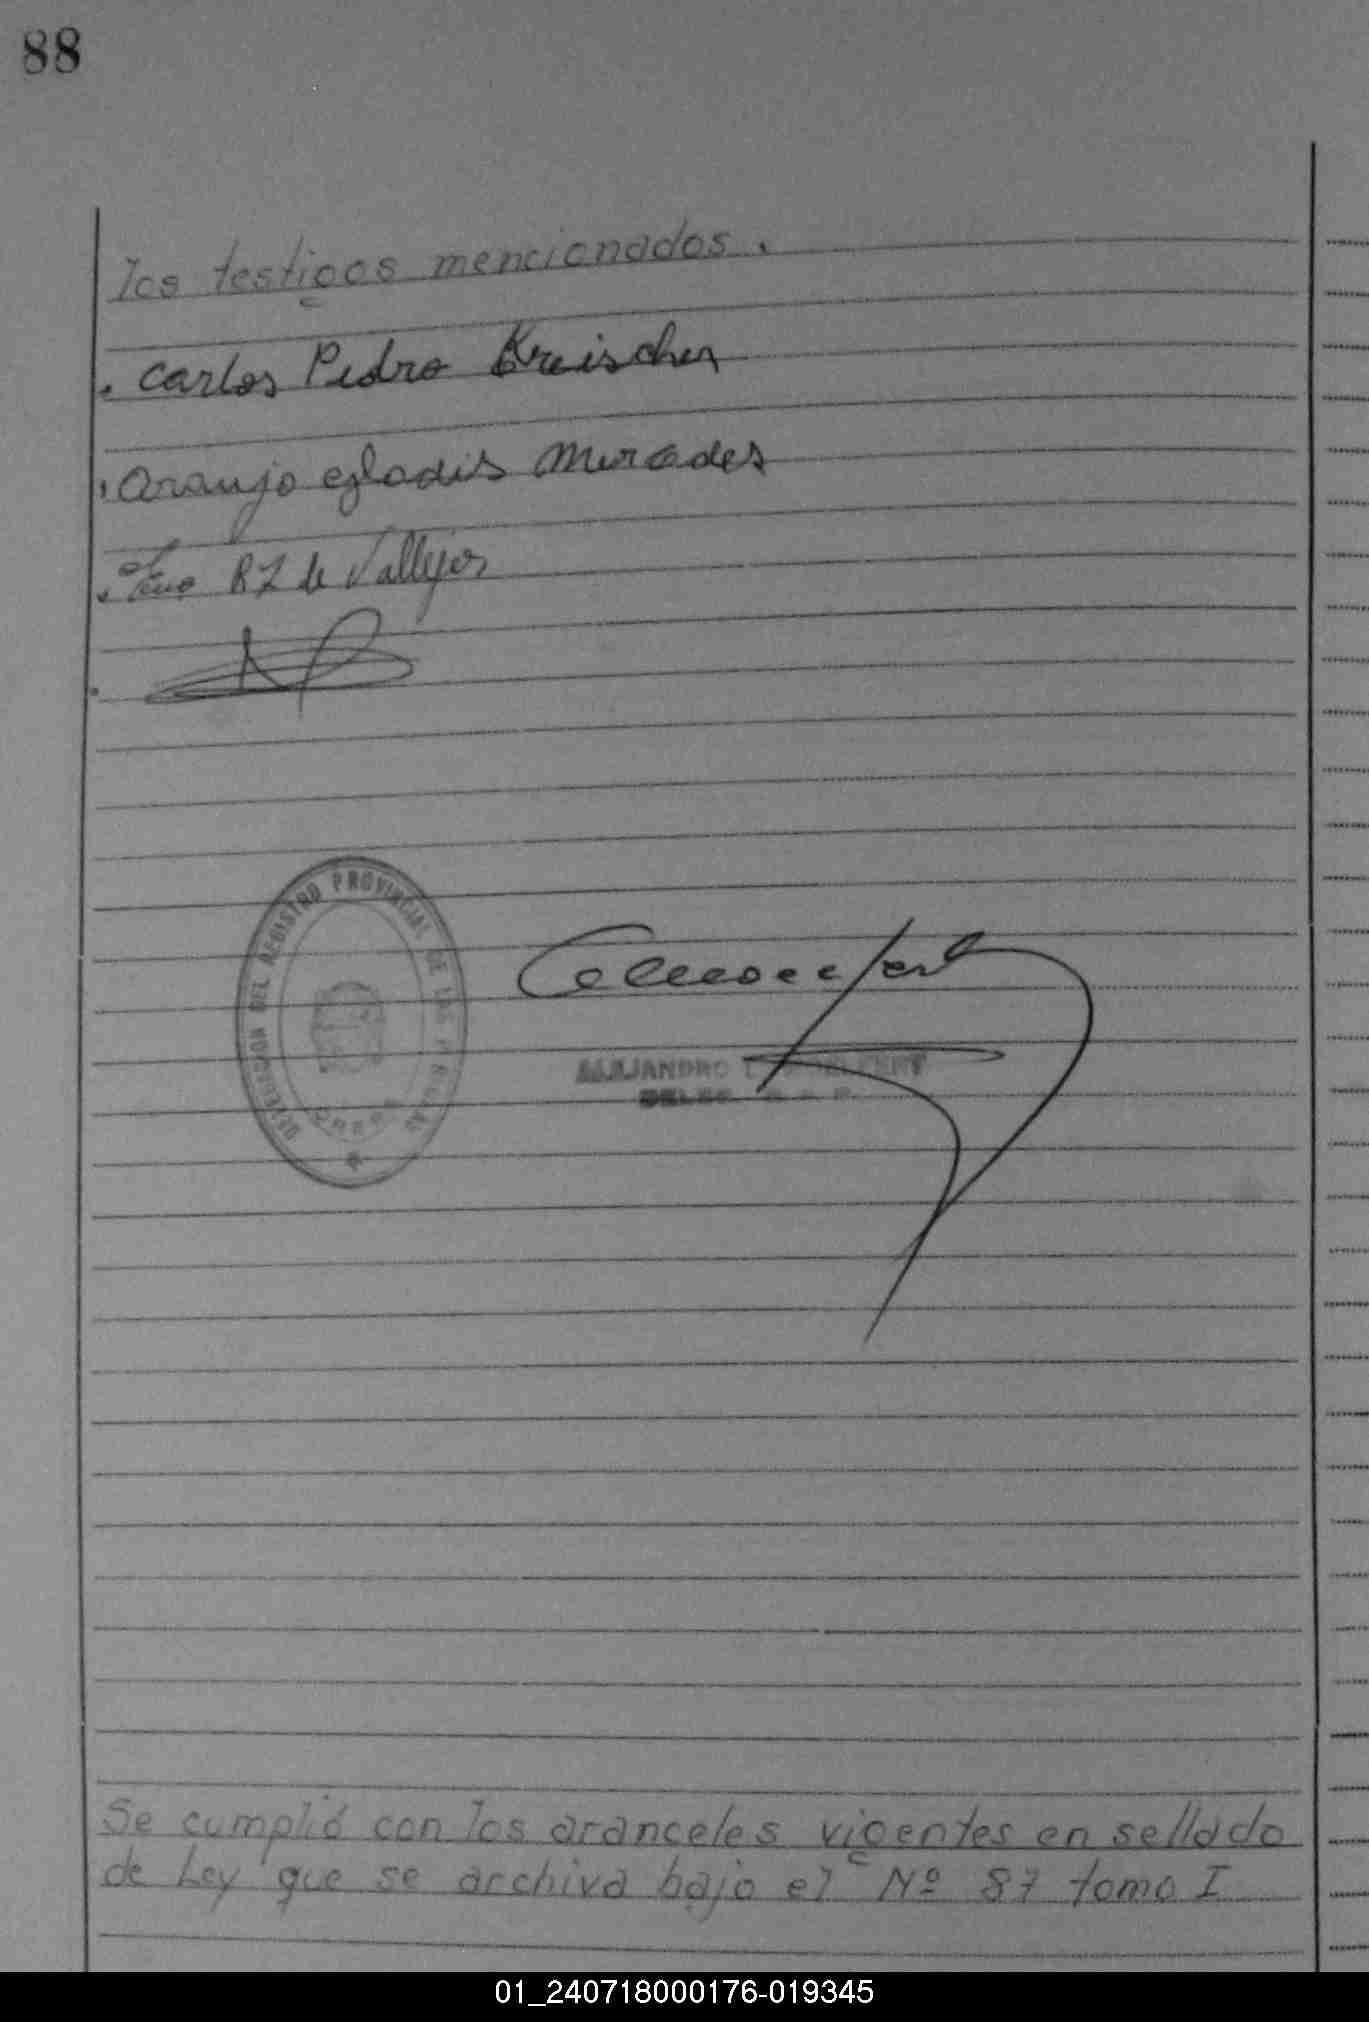 88
los testigos mencionados.
Carlos Pedro Kreischer
Araujo Gladis Mercedes
R Z de Vallejos
DIRECCION DEL REGISTRO PROVINCIAL DE LAS PERSONAS
ALEJANDRO
DELEG. R. P.
Se cumplió con los aranceles vigentes en sellado
de Ley que se archiva bajo el Nº 87 tomo I
01_240718000176-019345